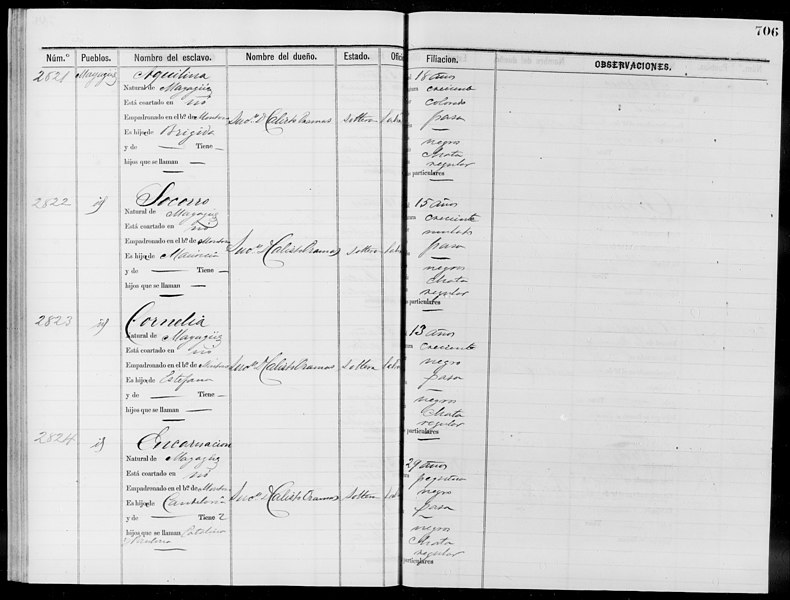 706
Núm.º Pueblos. Nombre del esclavo. Nombre del dueño. Estado. Ofici Filiacion. OBSERVACIONES.
2821 Mayagüez Aquilina
Natural de Mayagüez
Está coartado en no
Empadronado en el bº. de
Es hijo de Brigida
y de — Tiene —
hijos que se llaman —
Suc.n D Calisto soltera
18 años
creciente
colorado
pasa
—
negros
Chata
regular
particulares
—
2822 id Socorro
Natural de Mayagüez
Está coartado en no
Empadronado en el bº. de
Es hijo de
y de — Tiene —
hijos que se llaman —
Suc.n D Calisto soltera
15 años
creciente
mulato
pasa
—
negros
Chata
regular
particulares
—
2823 id Cornelia
Natural de Mayagüez
Está coartado en no
Empadronado en el bº. de
Es hijo de Estefana
y de — Tiene —
hijos que se llaman —
Suc.n D Calisto soltera
13 años
creciente
negro
pasa
—
negros
Chata
regular
particulares
—
2824 id Encarnacion
Natural de Mayagüez
Está coartado en no
Empadronado en el bº. de
Es hijo de Candelaria
y de — Tiene 2
hijos que se llaman Catalina
Suc.n D Calisto soltera
29 años
negro
pasa
—
negros
Chata
regular
particulares
—